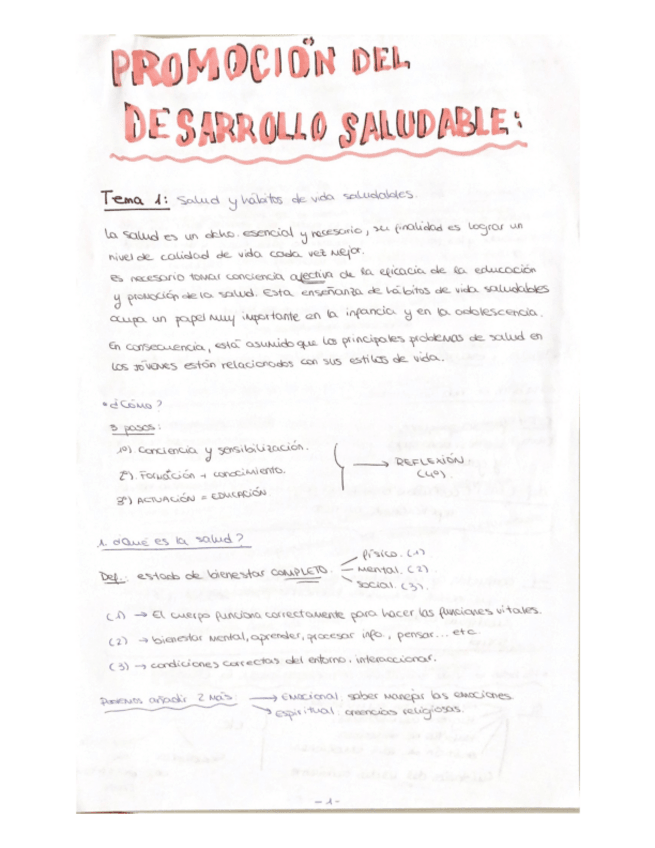 PROMOCIÓN DEL
DESARROLLO SALUDABLE:
Tema 1: Salud y hábitos de vida saludables.
La salud es un dcho. esencial y necesario, su finalidad es lograr un
nivel de calidad de vida cada vez mejor.
Es necesario tomar conciencia afectiva de la eficacia de la educación
y promoción de la salud. Esta enseñanza de hábitos de vida saludables
ocupa un papel muy importante en la infancia y en la adolescencia.
En consecuencia, está asumido que los principales problemas de salud en
los jóvenes están relacionados con sus estilos de vida.
• ¿Cómo?
3 pasos:
1º) Conciencia y sensibilización.
2º) Formación → conocimiento.
3º) ACTUACIÓN = EDUCACIÓN
→ REFLEXIÓN.
(4º).
1. ¿Qué es la salud?
Def.: estado de bienestar COMPLETO.
física. (1)
mental. (2)
social. (3).
(1) → El cuerpo funciona correctamente para hacer las funciones vitales.
(2) → bienestar mental, aprender, procesar info., pensar... etc.
(3) → condiciones correctas del entorno, interaccionar.
Podemos añadir 2 más: → Emocional: saber manejar las emociones.
→ Espiritual: creencias religiosas.
- 1 -